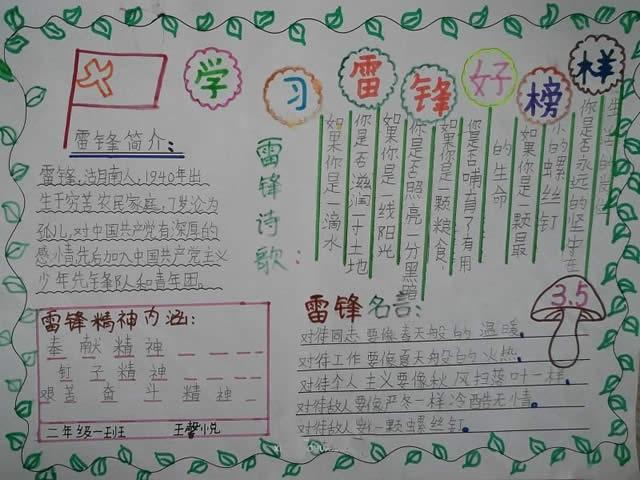 学习雷锋好榜样
雷锋简介：
雷锋,沽月南人,1940年出
生于穷苦农民家庭,7岁沦为
孤儿,对中国共产党有深厚的
感小青先后加入中国共产党主义
少年先锋队和青年团。
雷锋诗歌：
如果你是一滴水
你是否滋润一寸土地
如果你是一线阳光
你是否照亮一分黑暗
如果你是一颗粮食
你是否哺育了有用
的生命
如果你是一颗最
小的螺丝钉
你是否永远的坚守在
生活的岗位
雷锋精神内涵：
奉献精神
钉子精神
艰苦奋斗精神
二年级一班 王馨悦
雷锋名言：
3.5
对待同志要像春天般的温暖
对待工作要像夏天般的火热
对待个人主义要像秋风扫落叶一样
对待敌人要像严冬一样冷酷无情
对待敌人一颗螺丝钉